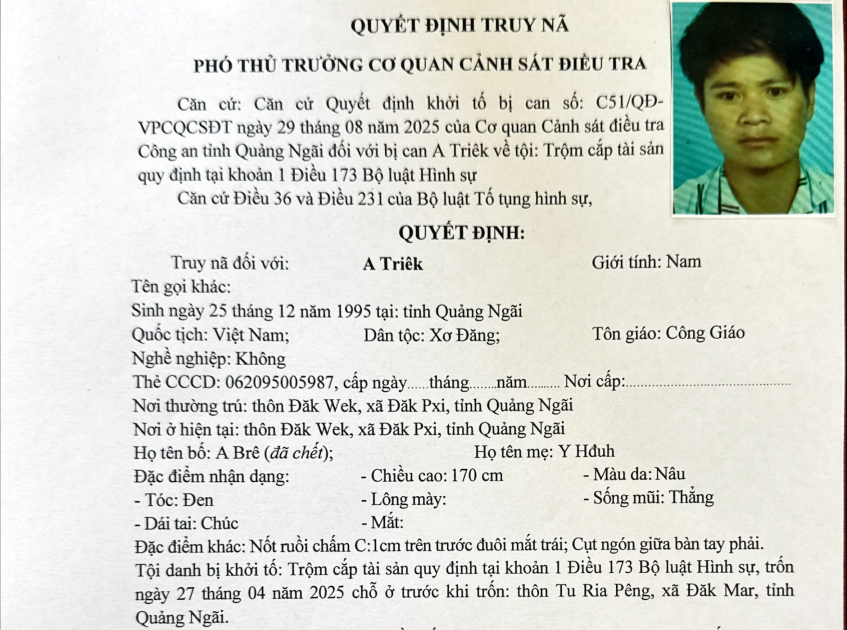 QUYẾT ĐỊNH TRUY NÃ
PHÓ THỦ TRƯỞNG CƠ QUAN CẢNH SÁT ĐIỀU TRA
Căn cứ: Căn cứ Quyết định khởi tố bị can số: C51/QĐ-
VPCQCSĐT ngày 29 tháng 08 năm 2025 của Cơ quan Cảnh sát điều tra
Công an tỉnh Quảng Ngãi đối với bị can A Triêk về tội: Trộm cắp tài sản
quy định tại khoản 1 Điều 173 Bộ luật Hình sự
Căn cứ Điều 36 và Điều 231 của Bộ luật Tố tụng hình sự,
QUYẾT ĐỊNH:
Truy nã đối với: A Triêk Giới tính: Nam
Tên gọi khác:
Sinh ngày 25 tháng 12 năm 1995 tại: tỉnh Quảng Ngãi
Quốc tịch: Việt Nam; Dân tộc: Xơ Đăng; Tôn giáo: Công Giáo
Nghề nghiệp: Không
Thẻ CCCD: 062095005987, cấp ngày......tháng.......năm......... Nơi cấp:..........................................
Nơi thường trú: thôn Đăk Wek, xã Đăk Pxi, tỉnh Quảng Ngãi
Nơi ở hiện tại: thôn Đăk Wek, xã Đăk Pxi, tỉnh Quảng Ngãi
Họ tên bố: A Brê (đã chết); Họ tên mẹ: Y Hđuh
Đặc điểm nhận dạng: - Chiều cao: 170 cm - Màu da: Nâu
- Tóc: Đen - Lông mày: - Sống mũi: Thẳng
- Dái tai: Chúc - Mắt:
Đặc điểm khác: Nốt ruồi chấm C:1cm trên trước đuôi mắt trái; Cụt ngón giữa bàn tay phải.
Tội danh bị khởi tố: Trộm cắp tài sản quy định tại khoản 1 Điều 173 Bộ luật Hình sự, trốn
ngày 27 tháng 04 năm 2025 chỗ ở trước khi trốn: thôn Tu Ria Pêng, xã Đăk Mar, tỉnh
Quảng Ngãi.